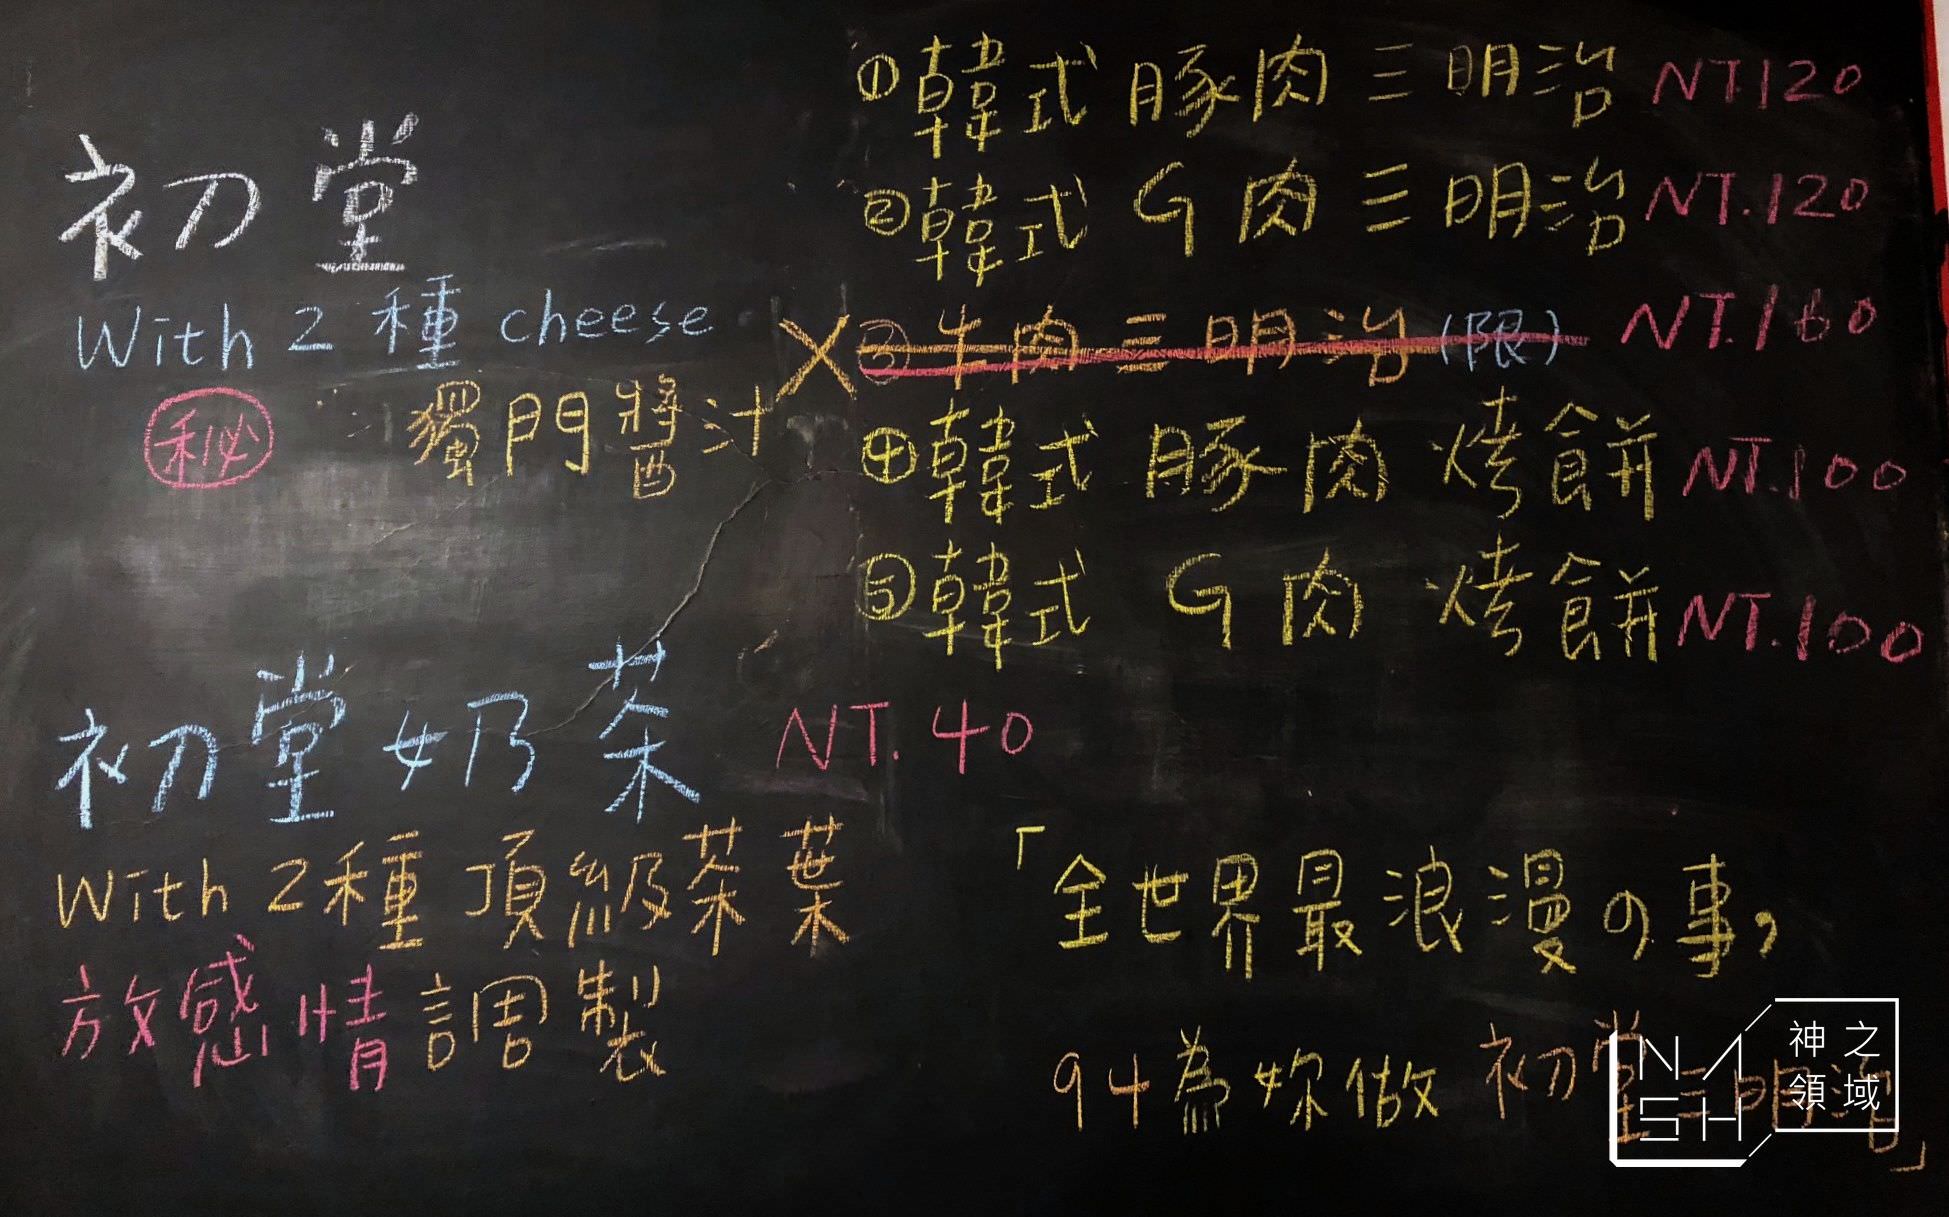 初堂
With 2 種 cheese
秘 獨門醬汁
①韓式豚肉三明治 NT.120
②韓式G肉三明治 NT.120
X③牛肉三明治(限) NT.160
④韓式豚肉烤餅 NT.100
⑤韓式G肉烤餅 NT.100
初堂奶茶 NT.40
With 2種頂級茶葉
放感情調製
「全世界最浪漫の事,
94為妳做初堂三明治」
NASH
神之
領域